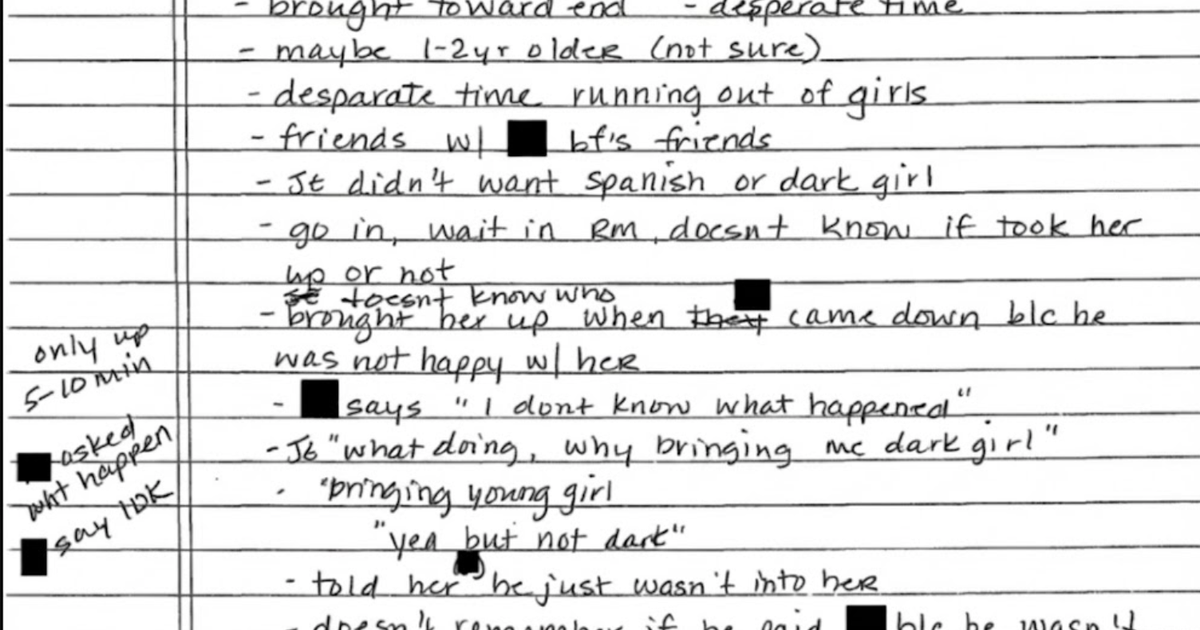 - brought toward end - desperate time
- maybe 1-2yr older (not sure)
- desparate time running out of girls
- friends w/ bf's friends
- JE didn't want spanish or dark girl
- go in, wait in RM, doesnt know if took her
up or not
doesnt know who
- brought her up when they came down b/c he
was not happy w/ her
only up
5-10 min
- says "I dont know what happened"
- JE "what doing, why bringing me dark girl"
asked
wht happen
say IDK
- "bringing young girl
"yea but not dark"
- told her he just wasn't into her
- doesn't remember if he said b/c he wasn't